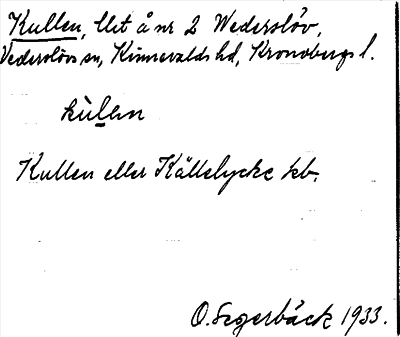 Kullen, lht å nr 2 Wederslöv,
Vederslövs sn, Kinnevalds hd, Kronobergs l.
kùlen
Kullen eller Källelycke kb.
O. Segerbäck 1933.